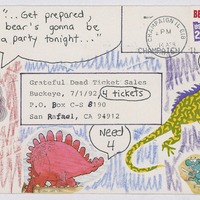 "...Get prepared,
bear's gonna be
a party tonight..."
CHAMPAIGN IL
PM
BE
29
CHAMPAIGN, IL
Grateful Dead Ticket Sales
Buckeye, 7/1/92, 4 tickets
P.O. Box C-S 8190
San Rafael, CA 94912
need
4